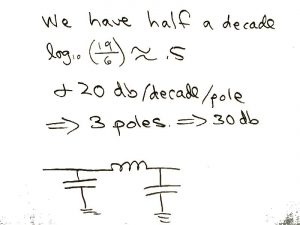 We have half a decade
log₁₀ (19/6) ≈ .5
+ 20 db/decade/pole
⇒ 3 poles. ⇒ 30 db